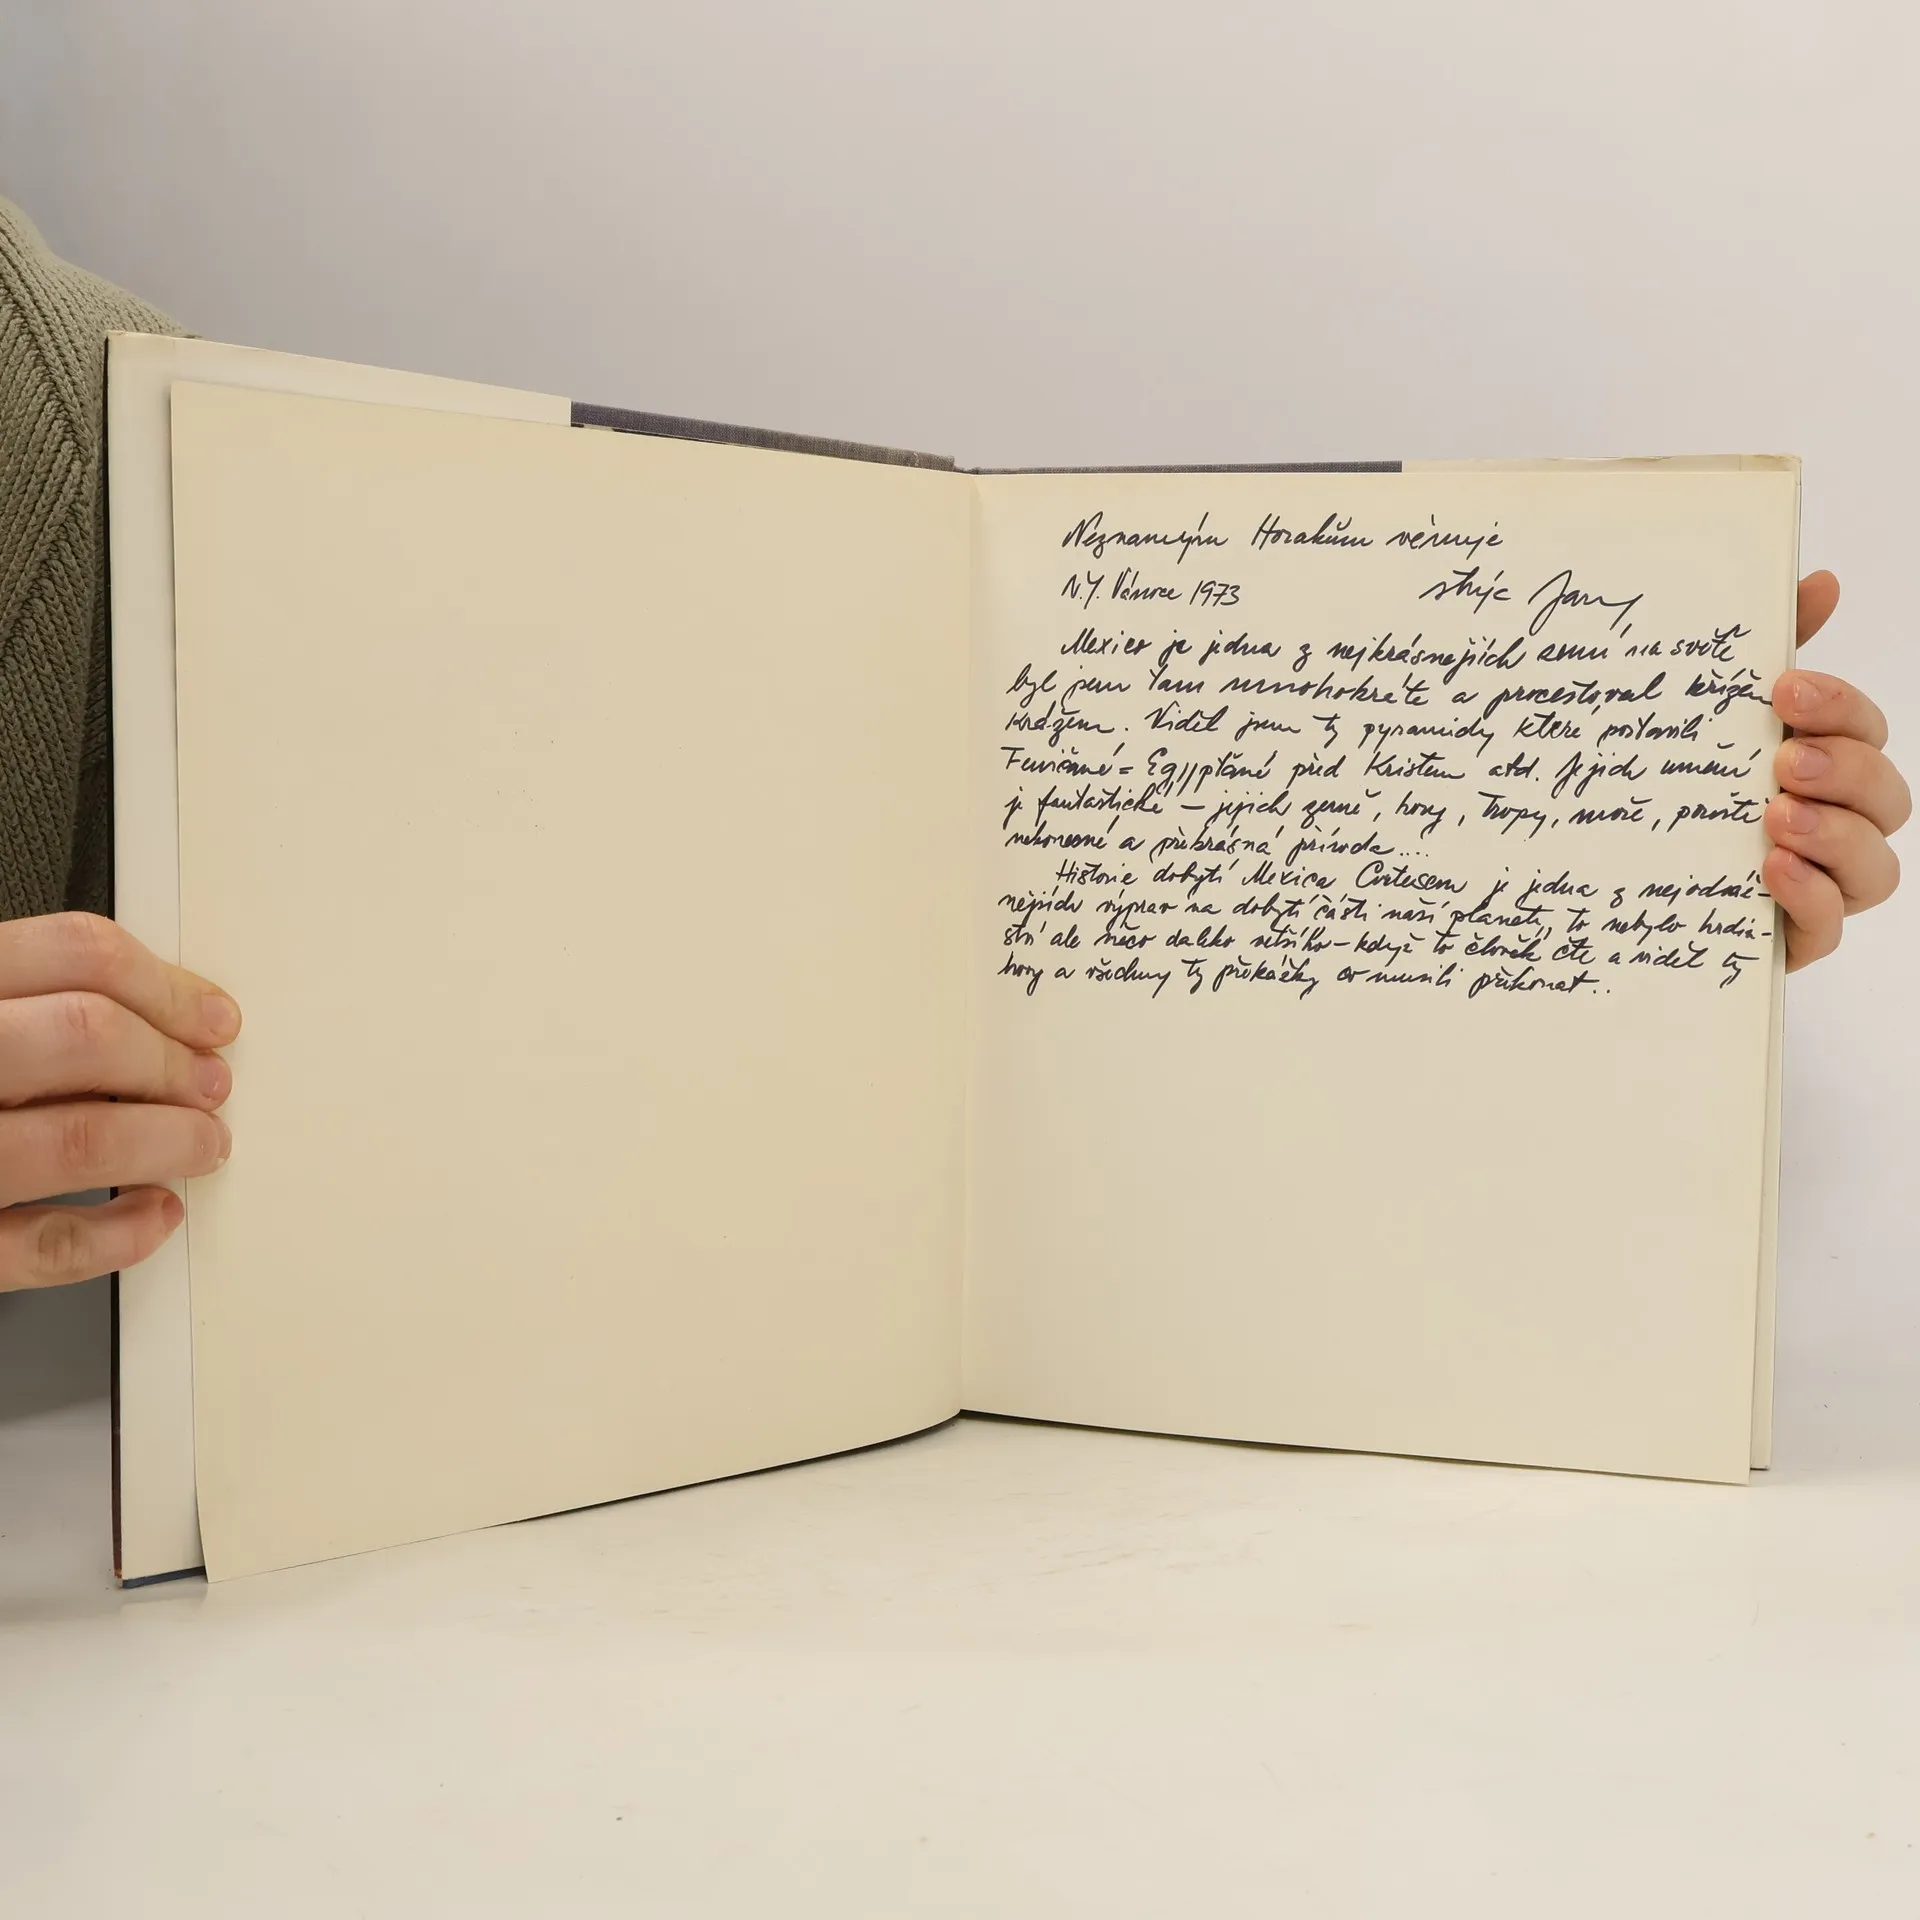 Neznámým Horákům věnuje
N.Y. Vánoce 1973 strýc Jarry
Mexico je jedna z nejkrásnejších zemí na světě
byl jsem tam mnohokráte a procestoval křížem
krážem. Viděl jsem ty pyramidy které postavili
Feničané = Egypťané před Kristem atd. Jejich umění
je fantastické – jejich země, hory, tropy, moře, prostě
nekonečné a překrásná příroda....
Historie dobytí Mexica Cortesem je jedna z nejodváž-
nějších výprav na dobytí části naší planety, to nebylo hrdin-
ství ale něco daleko většího – když to člověk čte a viděl ty
hory a všechny ty překážky co musili překonat..